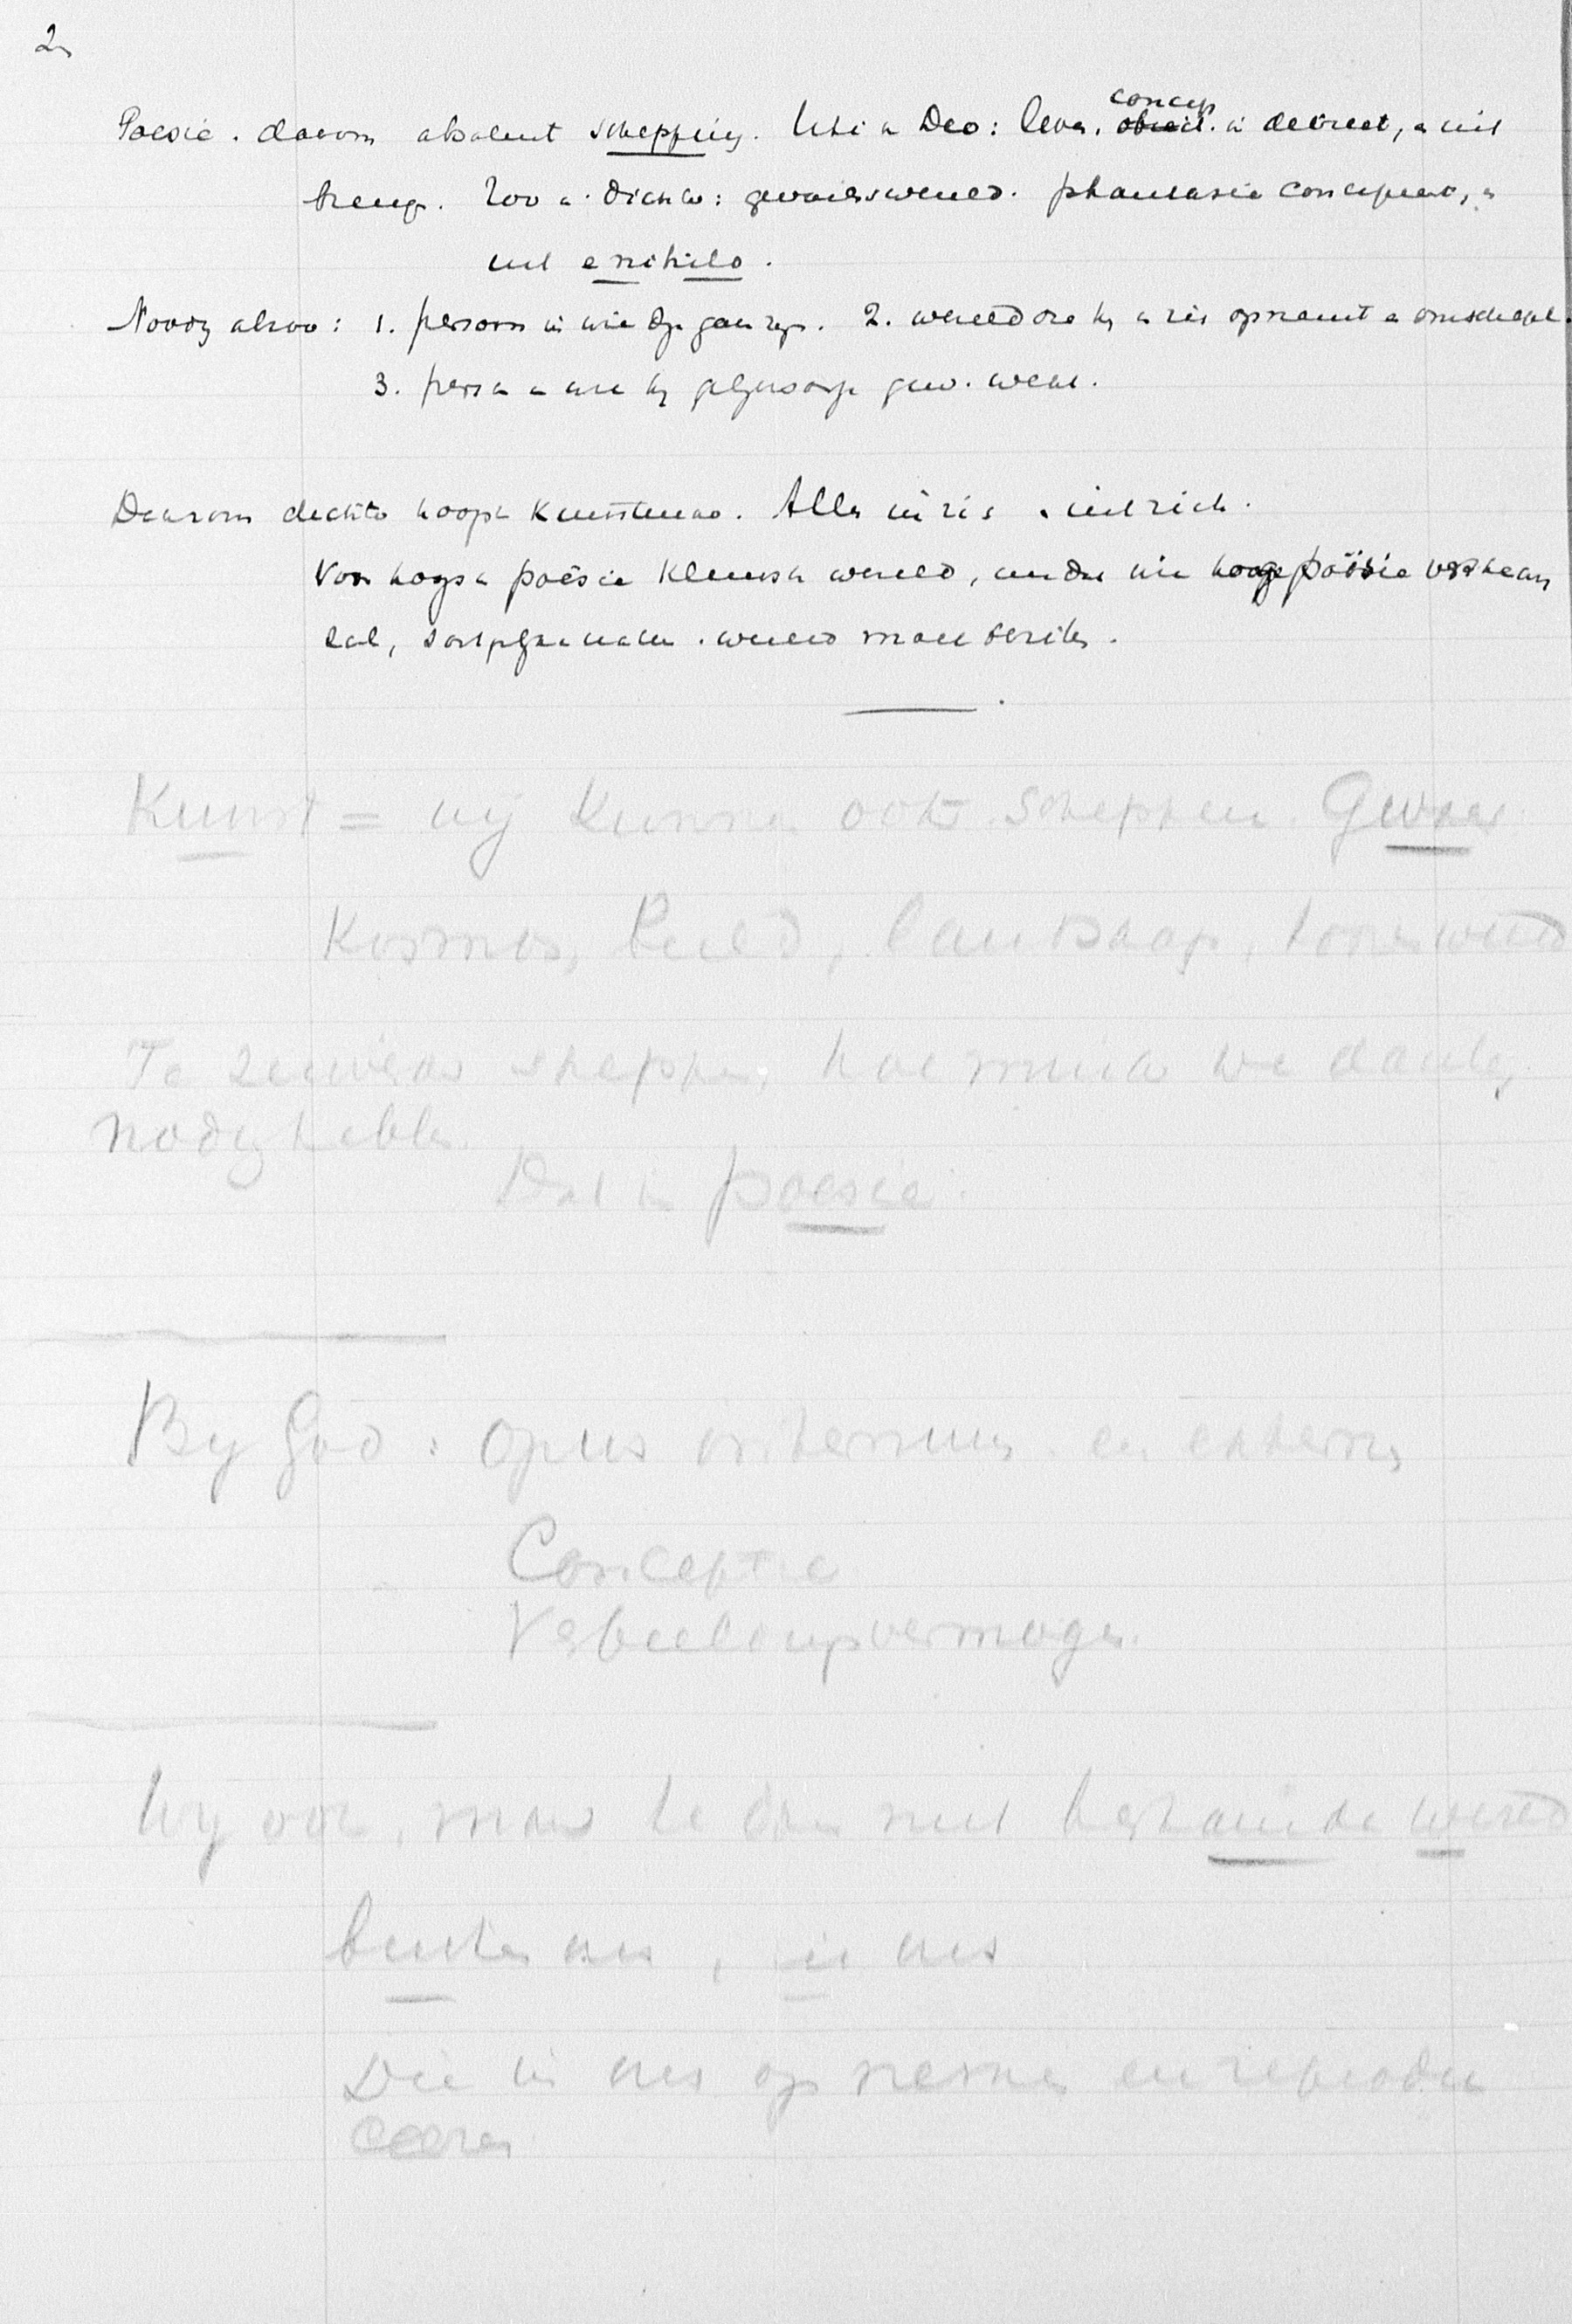 2
Poesie. daarom absoluut schepping. Uti in Deo: leven, concep. in decreet, en uit
breng. Zoo in dichter: gevoelswereld. phantasie concipieert, en
uit e nihilo.
Noodig alzoo: 1. persoon in wie dg. gaan zyn. 2. wereld die hy in zich opneemt en omschept.
3. pers in wie hy
Daarom dichter hoogste kunstenaar. Alles in zich, uit zich.
Voor hoogste poësie kleinste wereld, omdat wie hooge poësie verstaan
zal, soortgelyke wereld moet bezitten.
Kunst = wij kunnen ook scheppen. Gevoel
Kosmos, beeld, landschap, toonwereld
Te zuiverder scheppen, hoe minder we daarby
nodig hebben.
Dat is poesie.
By God: Opus internum en externum
Conceptie
Verbeeldingsvermogen.
Wy ook, maar te doen met bestaande wereld
buiten ons, in ons
Die in ons op nemen en reprodu
ceeren